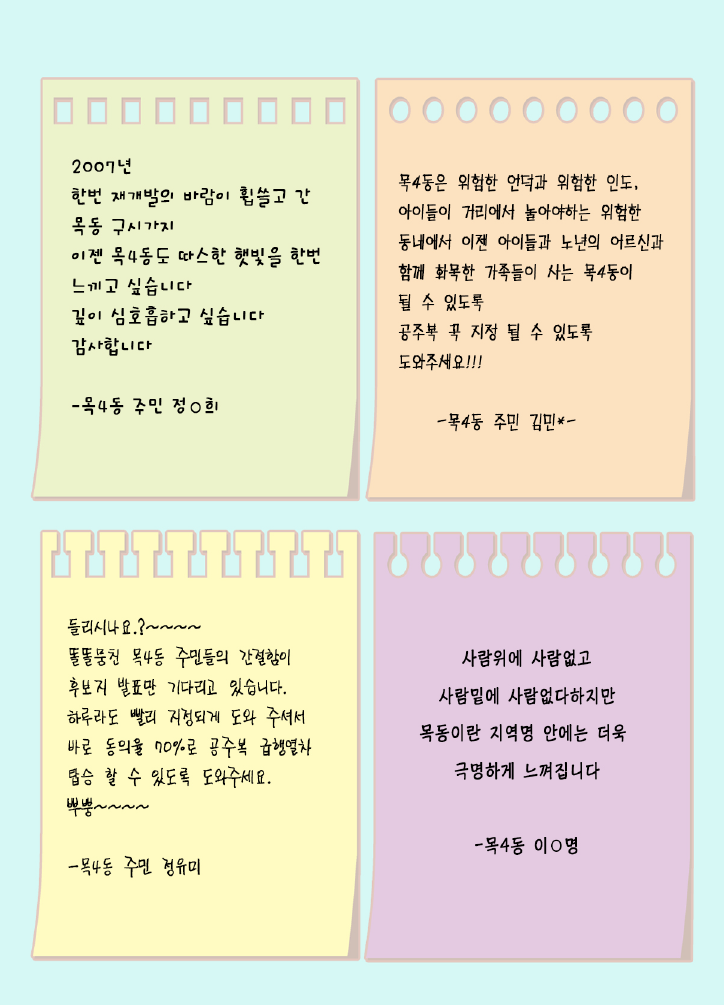 2007년
한번 재개발의 바람이 휩쓸고 간
목동 구시가지
이젠 목4동도 따스한 햇빛을 한번
느끼고 싶습니다
깊이 심호흡하고 싶습니다
감사합니다
-목4동 주민 정○희
목4동은 위험한 언덕과 위험한 인도,
아이들이 거리에서 놀아야하는 위험한
동네에서 이젠 아이들과 노년의 어르신과
함께 화목한 가족들이 사는 목4동이
될 수 있도록
공주복 꼭 지정 될 수 있도록
도와주세요!!!
-목4동 주민 김민*-
들리시나요.?~~~~
똘똘뭉친 목4동 주민들의 간절함이
후보지 발표만 기다리고 있습니다.
하루라도 빨리 지정되게 도와 주셔서
바로 동의율 70%로 공주복 급행열차
탑승 할 수 있도록 도와주세요.
뿌뿡~~~~
-목4동 주민 정유미
사람위에 사람없고
사람밑에 사람없다하지만
목동이란 지역명 안에는 더욱
극명하게 느껴집니다
-목4동 이○명